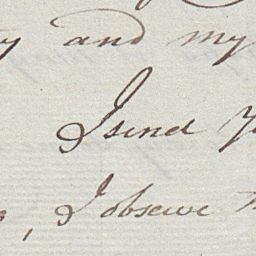 and my
I send
, I observe